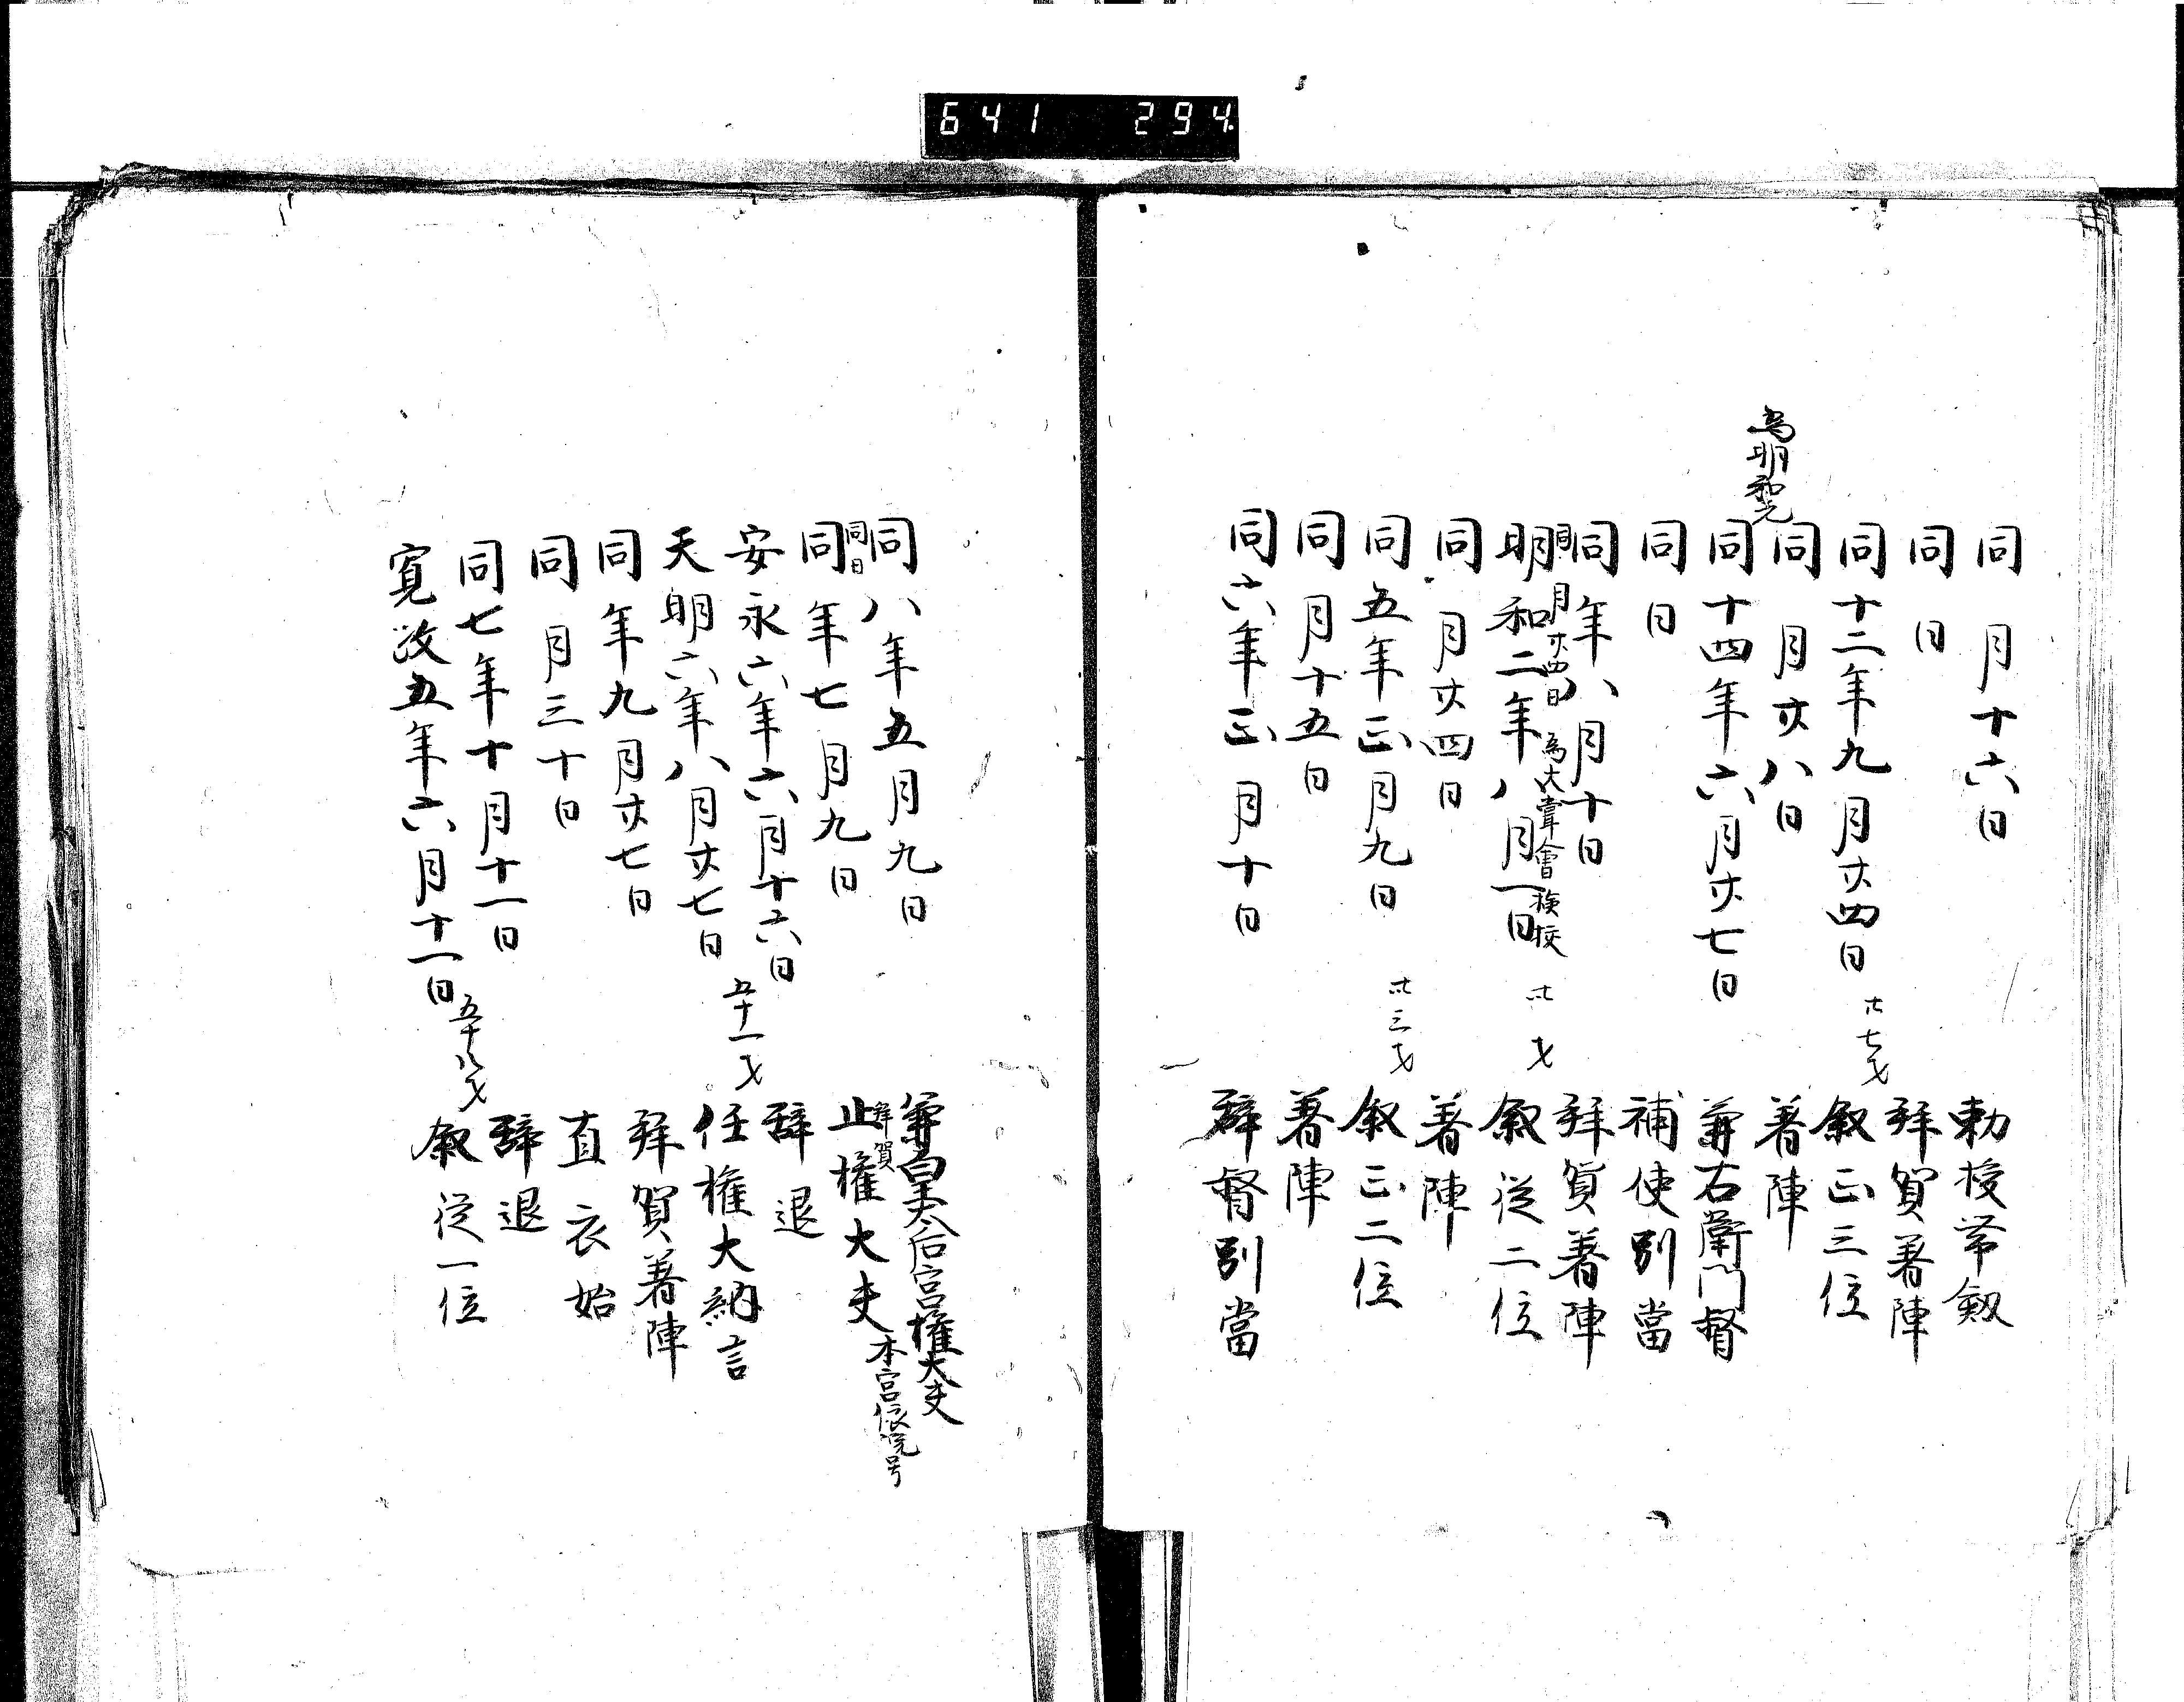 641 294
同 月十六日 勅授帯釼
同日 拜賀著陣
同十二年九月廿四日 廿七才 叙正三位
同 月廿八日 著陣
為明和元
同十四年六月廿七日 兼右衛門督
同日 補使別當
同年八月十日 拜賀著陣
同月廿四日 為大嘗會検校
明和二年八月一日 卅才 叙従二位
同 月廿四日 著陣
同五年正月九日 卅三才 叙正二位
同月十五日 著陣
同六年正月十日 辞督別當
同八年五月九日 兼皇太后宮權大夫
同日 拜賀
同年七月九日 止權大夫 本宮依院号
安永六年六月十六日 辞退
天明六年八月廿七日 五十一才 任權大納言
同年九月廿七日 拜賀著陣
同 月三十日 直衣始
同七年十月十一日 辞退
寛政五年六月十一日 五十八才 叙従一位